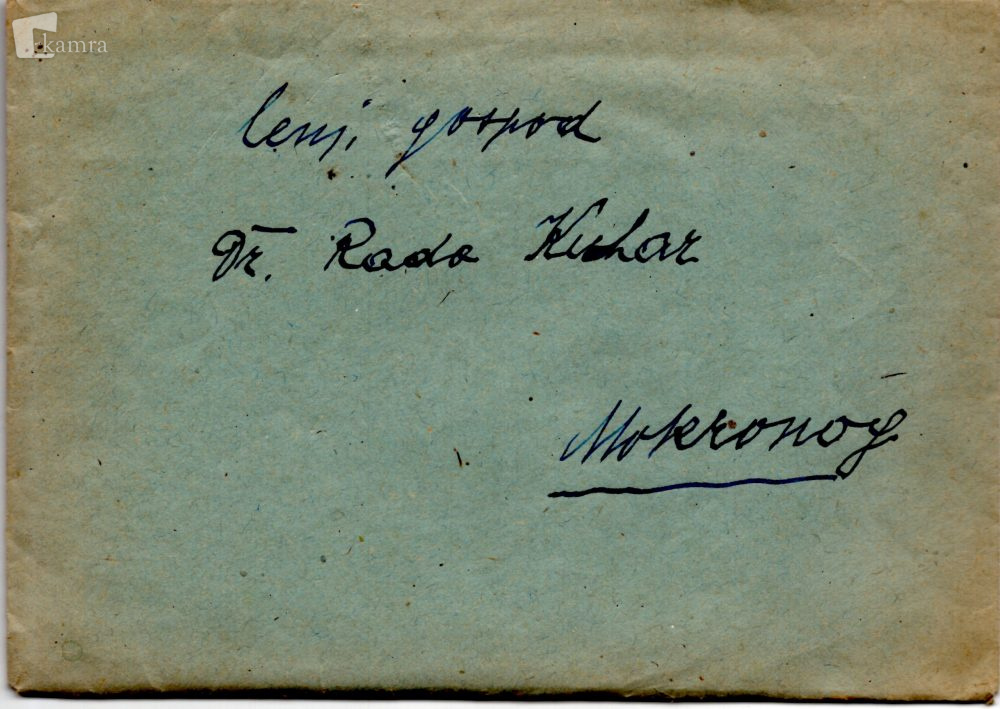 kamra
Cenj. gospod
Dr. Rado Kuhar
Mokronog